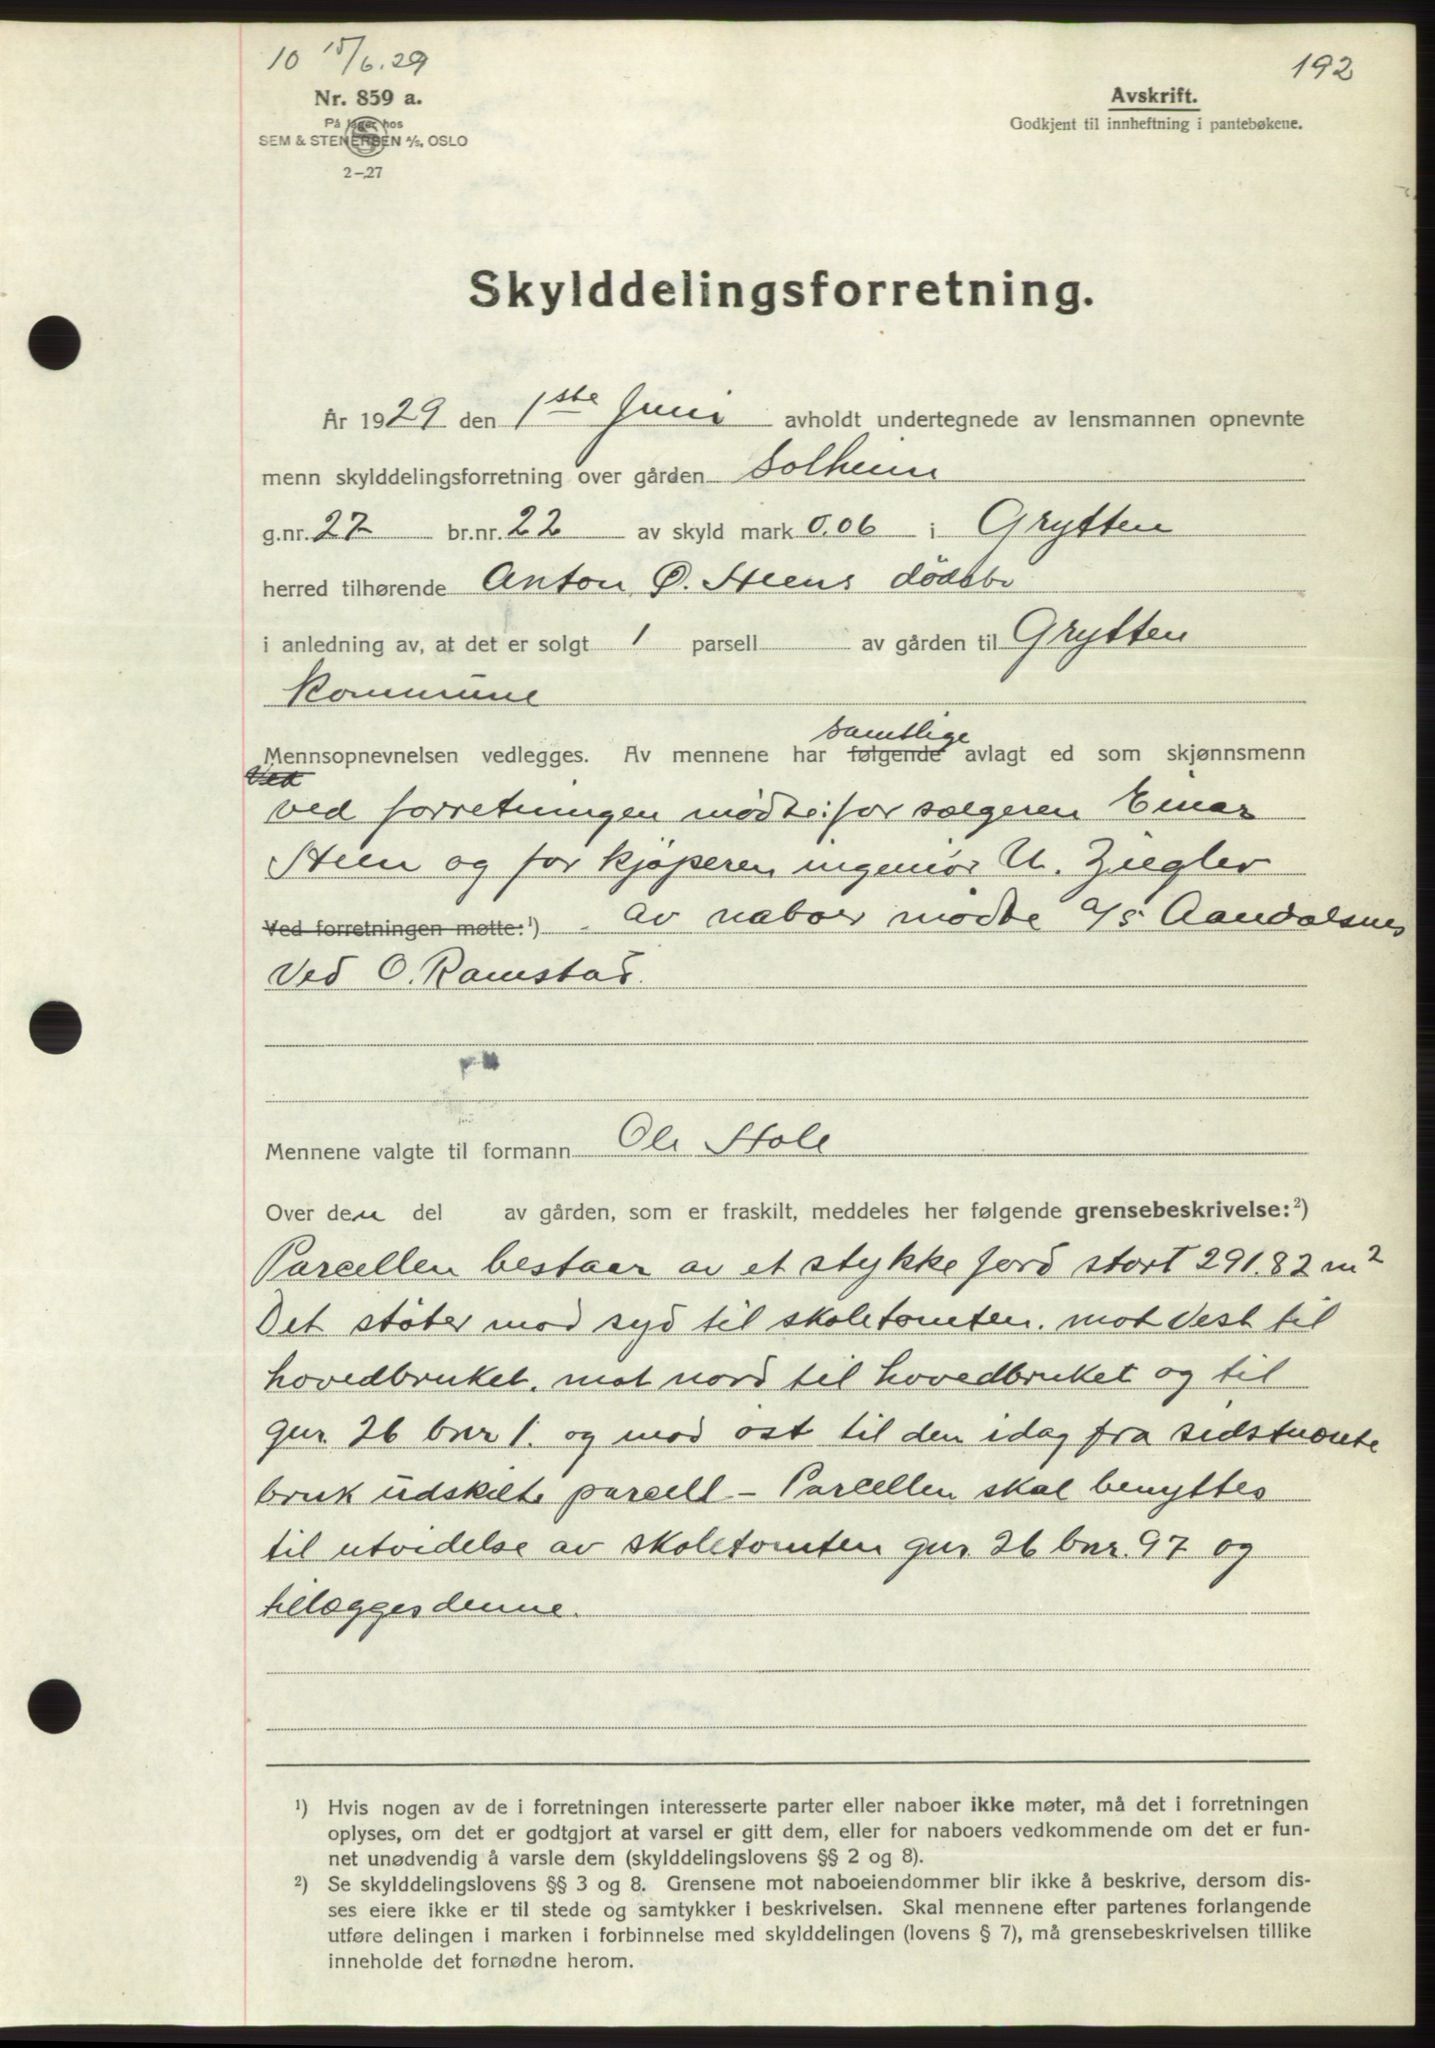 10 15/6.29
192
Nr. 859 a.
På lager hos
SEM & STENERSEN A/S, OSLO
2-27
Avskrift.
Godkjent til innheftning i pantebøkene.
Skylddelingsforretning.
År 1929 den 1ste Juni avholdt undertegnede av lensmannen opnevnte
menn skylddelingsforretning over gården Solheim
g.nr. 27 br.nr. 22 av skyld mark 0.06 i Grytten
herred tilhørende Anton O. Steens dødsbo
i anledning av, at det er solgt 1 parsell av gården til Grytten
Kommune
samtlige
Mennsopnevnelsen vedlegges. Av mennene har følgende avlagt ed som skjønnsmenn
Ved
ved forretningen mødte: for sælgeren Einar
Steen og for kjøperen ingeniør U. Ziegler
Ved forretningen møtte: 1) - av naboer mødte a/s Aandalsnes
ved O. Ramstad.
Mennene valgte til formann Ole Stole
Over den del av gården, som er fraskilt, meddeles her følgende grensebeskrivelse: 2)
Parcellen bestaar av et stykke jord stort 291.82 m2
Det støter mod syd til skoletomten. mot vest til
hovedbruket. mot nord til hovedbruket og til
gnr. 26 bnr 1. og mod øst til den idag fra sidstnævnte
bruk udskilte parcell - Parcellen skal benyttes
til utvidelse av skoletomten gnr. 26 bnr. 97 og
tillægges denne.
1) Hvis nogen av de i forretningen interesserte parter eller naboer ikke møter, må det i forretningen
oplyses, om det er godtgjort at varsel er gitt dem, eller for naboers vedkommende om det er fun-
net unødvendig å varsle dem (skylddelingslovens §§ 2 og 8).
2) Se skylddelingslovens §§ 3 og 8. Grensene mot naboeiendommer blir ikke å beskrive, dersom dis-
ses eiere ikke er til stede og samtykker i beskrivelsen. Skal mennene efter partenes forlangende
utføre delingen i marken i forbinnelse med skylddelingen (lovens § 7), må grensebeskrivelsen tillike
inneholde det fornødne herom.